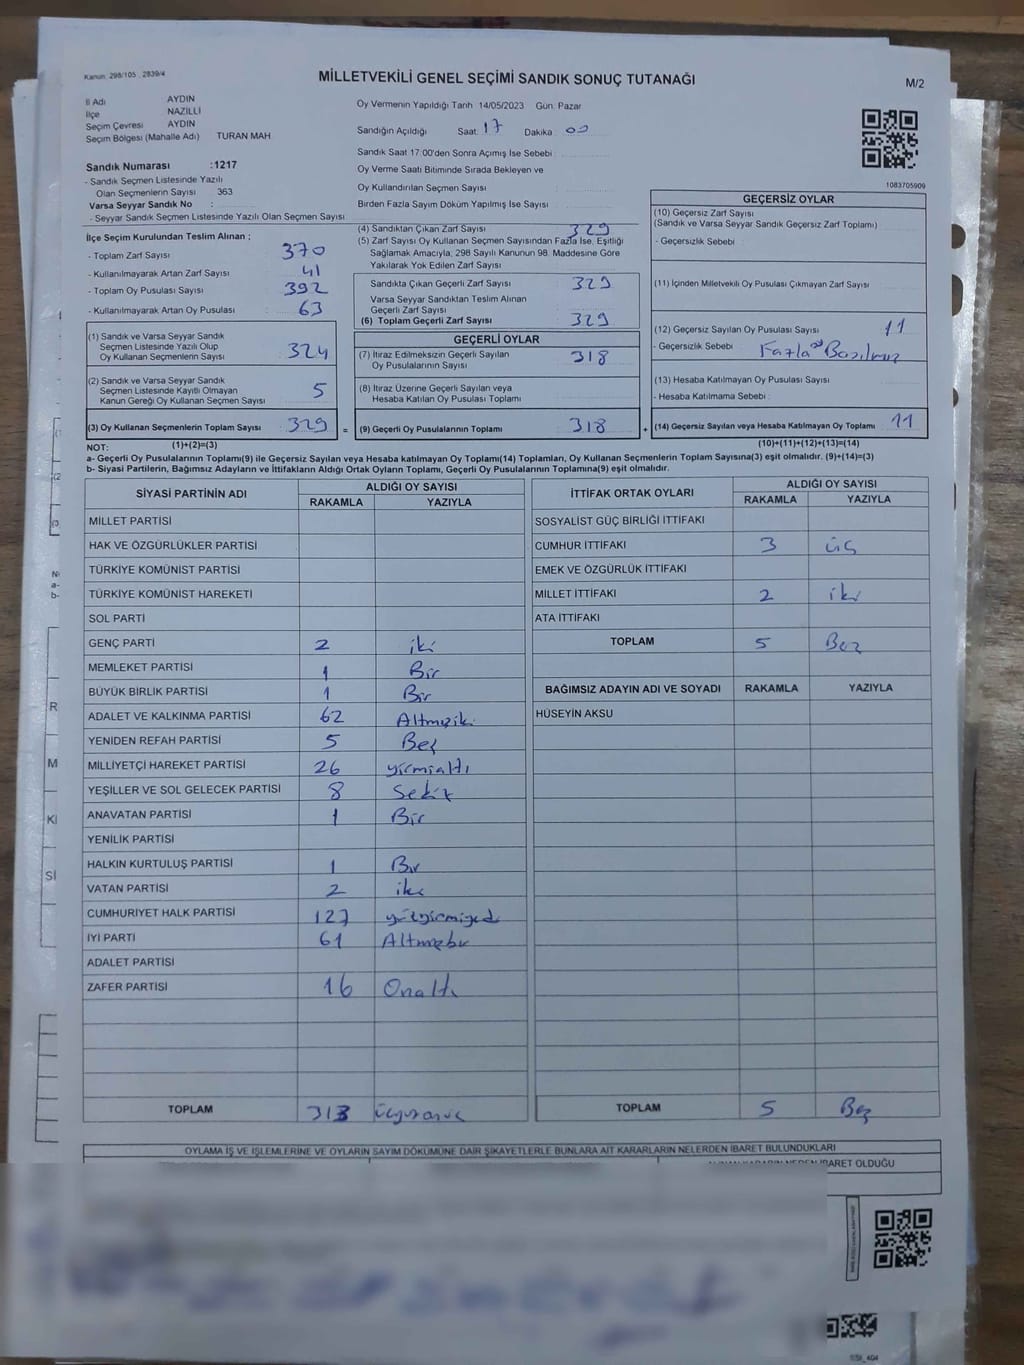 Kanun: 298/105 , 2839/4
MİLLETVEKİLİ GENEL SEÇİMİ SANDIK SONUÇ TUTANAĞI
M/2
İl Adı AYDIN
İlçe NAZİLLİ
Seçim Çevresi AYDIN
Seçim Bölgesi (Mahalle Adı) TURAN MAH
Sandık Numarası :1217
- Sandık Seçmen Listesinde Yazılı
Olan Seçmenlerin Sayısı 363
Varsa Seyyar Sandık No :
- Seyyar Sandık Seçmen Listesinde Yazılı Olan Seçmen Sayısı
Oy Vermenin Yapıldığı Tarih 14/05/2023 Gün: Pazar
Sandığın Açıldığı Saat: 17 Dakika: 00
Sandık Saat 17:00'den Sonra Açılmış İse Sebebi:
Oy Verme Saati Bitiminde Sırada Bekleyen ve
Oy Kullandırılan Seçmen Sayısı
Birden Fazla Sayım Döküm Yapılmış İse Sayısı
1083705909
İlçe Seçim Kurulundan Teslim Alınan ;
- Toplam Zarf Sayısı 370
- Kullanılmayarak Artan Zarf Sayısı 41
- Toplam Oy Pusulası Sayısı 392
- Kullanılmayarak Artan Oy Pusulası 63
(1) Sandık ve Varsa Seyyar Sandık
Seçmen Listesinde Yazılı Olup
Oy Kullanan Seçmenlerin Sayısı 324
(2) Sandık ve Varsa Seyyar Sandık
Seçmen Listesinde Kayıtlı Olmayan
Kanun Gereği Oy Kullanan Seçmen Sayısı 5
(3) Oy Kullanan Seçmenlerin Toplam Sayısı 329 =
(1)+(2)=(3)
(4) Sandıktan Çıkan Zarf Sayısı 329
(5) Zarf Sayısı Oy Kullanan Seçmen Sayısından Fazla İse, Eşitliği
Sağlamak Amacıyla, 298 Sayılı Kanunun 98. Maddesine Göre
Yakılarak Yok Edilen Zarf Sayısı
Sandıkta Çıkan Geçerli Zarf Sayısı 329
Varsa Seyyar Sandıktan Teslim Alınan
Geçerli Zarf Sayısı
(6) Toplam Geçerli Zarf Sayısı 329
GEÇERLİ OYLAR
(7) İtiraz Edilmeksizin Geçerli Sayılan
Oy Pusulalarının Sayısı 318
(8) İtiraz Üzerine Geçerli Sayılan veya
Hesaba Katılan Oy Pusulası Toplamı
(9) Geçerli Oy Pusulalarının Toplamı 318 +
GEÇERSİZ OYLAR
(10) Geçersiz Zarf Sayısı
(Sandık ve Varsa Seyyar Sandık Geçersiz Zarf Toplamı)
- Geçersizlik Sebebi
(11) İçinden Milletvekili Oy Pusulası Çıkmayan Zarf Sayısı
(12) Geçersiz Sayılan Oy Pusulası Sayısı 11
- Geçersizlik Sebebi Fazla Basılmış
(13) Hesaba Katılmayan Oy Pusulası Sayısı
- Hesaba Katılmama Sebebi
(14) Geçersiz Sayılan veya Hesaba Katılmayan Oy Toplamı 11
(10)+(11)+(12)+(13)=(14)
NOT:
a- Geçerli Oy Pusulalarının Toplamı(9) ile Geçersiz Sayılan veya Hesaba katılmayan Oy Toplamı(14) Toplamları, Oy Kullanan Seçmenlerin Toplam Sayısına(3) eşit olmalıdır. (9)+(14)=(3)
b- Siyasi Partilerin, Bağımsız Adayların ve İttifakların Aldığı Ortak Oyların Toplamı, Geçerli Oy Pusulalarının Toplamına(9) eşit olmalıdır.
SİYASİ PARTİNİN ADI ALDIĞI OY SAYISI
RAKAMLA YAZIYLA
MİLLET PARTİSİ
HAK VE ÖZGÜRLÜKLER PARTİSİ
TÜRKİYE KOMÜNİST PARTİSİ
TÜRKİYE KOMÜNİST HAREKETİ
SOL PARTİ
GENÇ PARTİ 2 iki
MEMLEKET PARTİSİ 1 Bir
BÜYÜK BİRLİK PARTİSİ 1 Bir
ADALET VE KALKINMA PARTİSİ 62 Altmışiki
YENİDEN REFAH PARTİSİ 5 Beş
MİLLİYETÇİ HAREKET PARTİSİ 26 yirmialtı
YEŞİLLER VE SOL GELECEK PARTİSİ 8 Sekiz
ANAVATAN PARTİSİ 1 Bir
YENİLİK PARTİSİ
HALKIN KURTULUŞ PARTİSİ 1 Bir
VATAN PARTİSİ 2 iki
CUMHURİYET HALK PARTİSİ 127 yüzyirmiyedi
İYİ PARTİ 61 Altmışbir
ADALET PARTİSİ
ZAFER PARTİSİ 16 Onaltı
TOPLAM 313
İTTİFAK ORTAK OYLARI ALDIĞI OY SAYISI
RAKAMLA YAZIYLA
SOSYALİST GÜÇ BİRLİĞİ İTTİFAKI
CUMHUR İTTİFAKI 3 üç
EMEK VE ÖZGÜRLÜK İTTİFAKI
MİLLET İTTİFAKI 2 iki
ATA İTTİFAKI
TOPLAM 5 Beş
BAĞIMSIZ ADAYIN ADI VE SOYADI RAKAMLA YAZIYLA
HÜSEYİN AKSU
TOPLAM 5 Beş
OYLAMA İŞ VE İŞLEMLERİNE VE OYLARIN SAYIM DÖKÜMÜNE DAİR ŞİKAYETLERLE BUNLARA AİT KARARLARIN NELERDEN İBARET BULUNDUKLARI
İBARET OLDUĞU